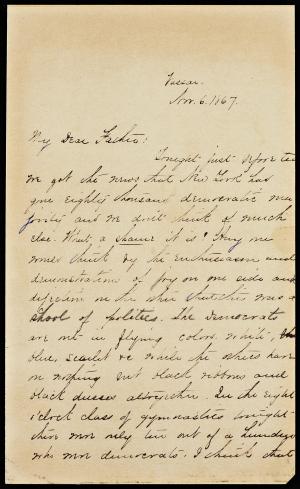 Vassar.
Nov. 6. 1867.
My Dear Father:
Tonight just before tea
we got the news that New York has
gone eighty thousand democratic ma
jority and we don't think of much
else. What a shame it is! Any one
would think by the enthusiasm and
demonstration of joy on one side and
depression on the other that this was a
school of politics. The democrats
are out in flying colors, white,
blue, scarlet &c while the others have
on nothing but black ribbons and
black dresses altogether. In the eight
o'clock class of gymnastics tonight
there were only ten out of a hundred
who were democrats. I think that